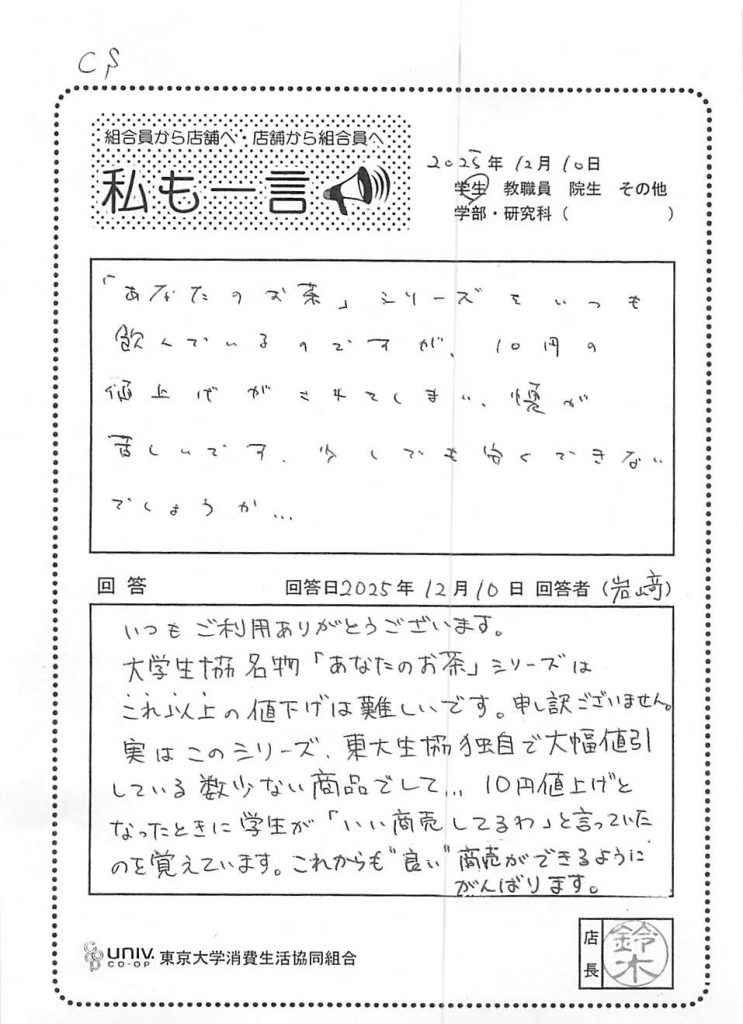 組合員から店舗へ・店舗から組合員へ
私も一言
2025年12月10日
学生 教職員 院生 その他
学部・研究科（ ）
「あなたのお茶」シリーズをいつも
飲んでいるのですが、10円の
値上げがされてしまい、懐が
苦しいです、少しでも安くできない
でしょうか...
回答 回答日2025年12月10日 回答者（岩﨑）
いつもご利用ありがとうございます。
大学生協名物「あなたのお茶」シリーズは
これ以上の値下げは難しいです。申し訳ございません。
実はこのシリーズ、東大生協独自で大幅値引
している数少ない商品でして... 10円値上げと
なったときに学生が「いい商売してるわ」と言っていた
のを覚えています。これからも"良い"商売ができるように
がんばります。
UNIV.
CO-OP
東京大学消費生活協同組合
店長
鈴木